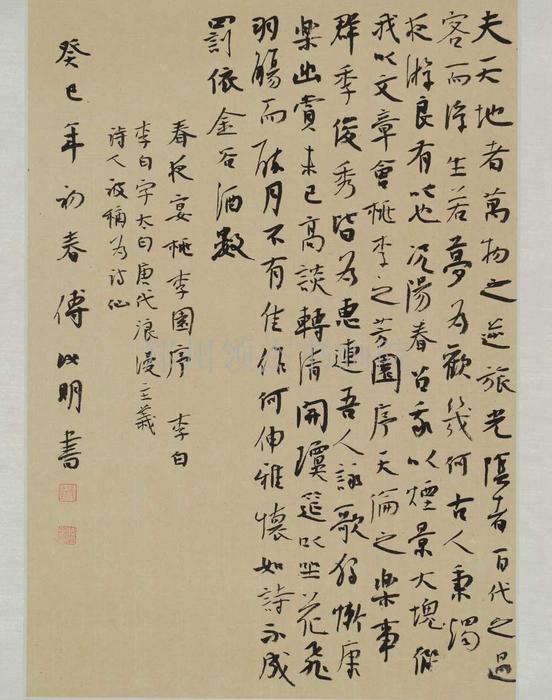 夫天地者萬物之逆旅光陰者百代之過
客而浮生若夢為歡幾何古人秉燭
夜游良有以也況陽春召我以煙景大塊假
我以文章會桃李之芳園序天倫之樂事
群季俊秀皆為惠連吾人詠歌獨慚康
樂幽賞未已高談轉清開瓊筵以坐花飛
羽觴而醉月不有佳作何伸雅懷如詩不成
罰依金谷酒數
春夜宴桃李園序 李白
李白字太白唐代浪漫主義
詩人被稱為詩仙
癸巳年初春傅明書